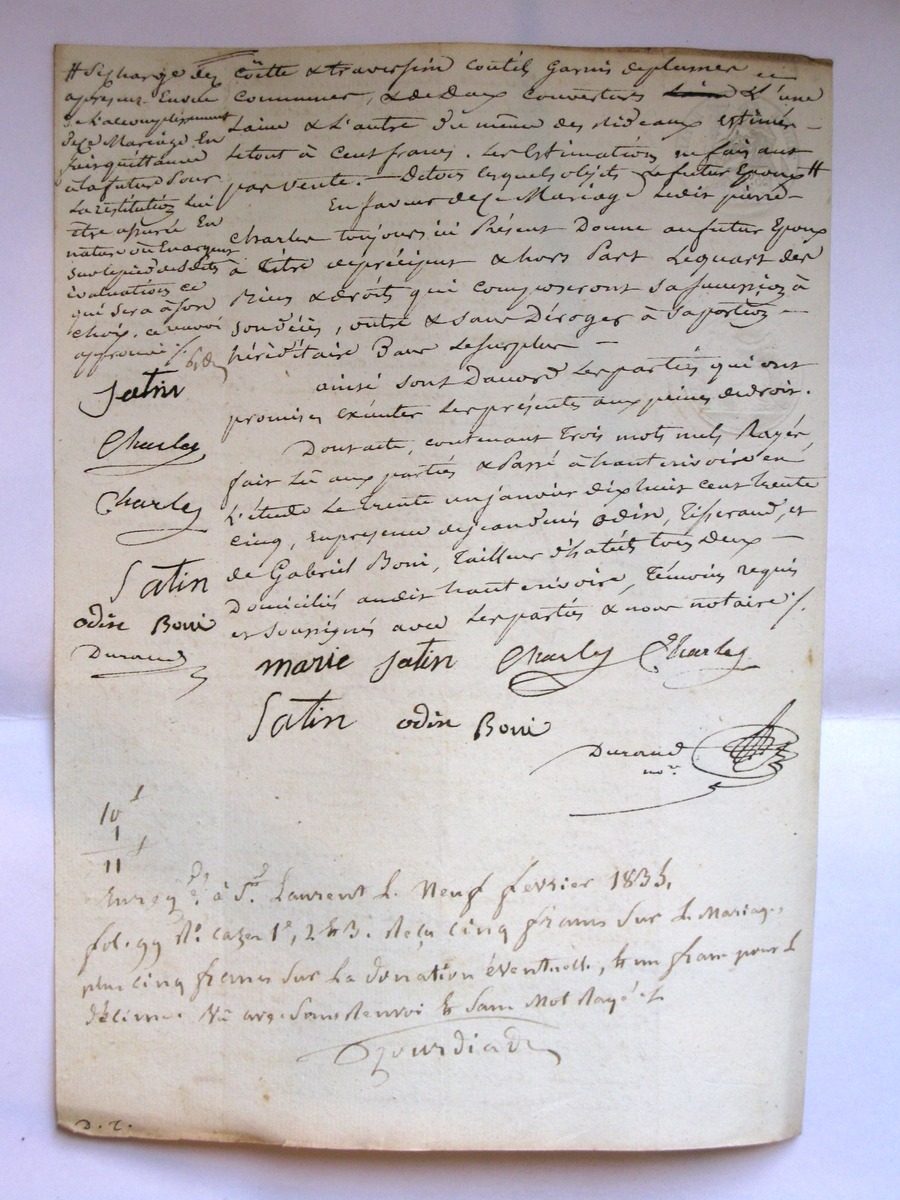 # Se charge des
à présent Ensuite
de L'accomplissement
de Ce Mariage En
fais quittance
à la future Pour
La restitution lui
être assurée En
nature ou En argent
sur le pied desdites
évaluations ce
qui sera à son
choix. ce renvoi
approuvé ./.
Satin
Charley
Charley
Satin
odin Boni
Durand
Coëtte & traversin coutil garnis de plumes
communes, & de Deux couvertures L'une
Laine & L'autre du même des Rideaux estimés
le tout à Cent francs. Les Estimations ne faisant
pas vente. — De tous lesquels objets Le futur Epoux #
En faveur de Ce Mariage Ledit pierre
Charles toujours ici Présent Donne au futur Epoux
à titre de préciput & hors Part Le quart des
Biens & droits qui composeront Sa succession à
son décès, outre & sans Déroger à Sa portion
héréditaire Pour Le surplus —
ainsi sont D'accord Les parties qui ont
promis exécuter Les présentes aux peines de droit.
Dont acte, contenant Trois mots nuls Rayés,
fait Lû aux parties & Passé à haut rivoire en
L'étude Le trente un janvier dix huit cent trente
cinq, En présence de jean denis odin, Tisserand, et
de Gabriel Boni, Tailleur d'habits tous Deux —
Domiciliés audit haut rivoire, Témoins requis
et soussignés avec Les parties & nous notaire ./.
marie Satin Charley Charley
Satin odin Boni
Durand
no.re
10 f
1
11 f
Enreg.é à S.t Laurent L. Neuf février 1835,
fol. 99 R.o cases 1e, 2 & 3. Reçu cinq francs sur L. Mariage,
plus cinq francs sur La donation éventuelle, & un franc pour L.
décime. Vû avec Sous Renvoi & Sans Mot Rayé
D. T.